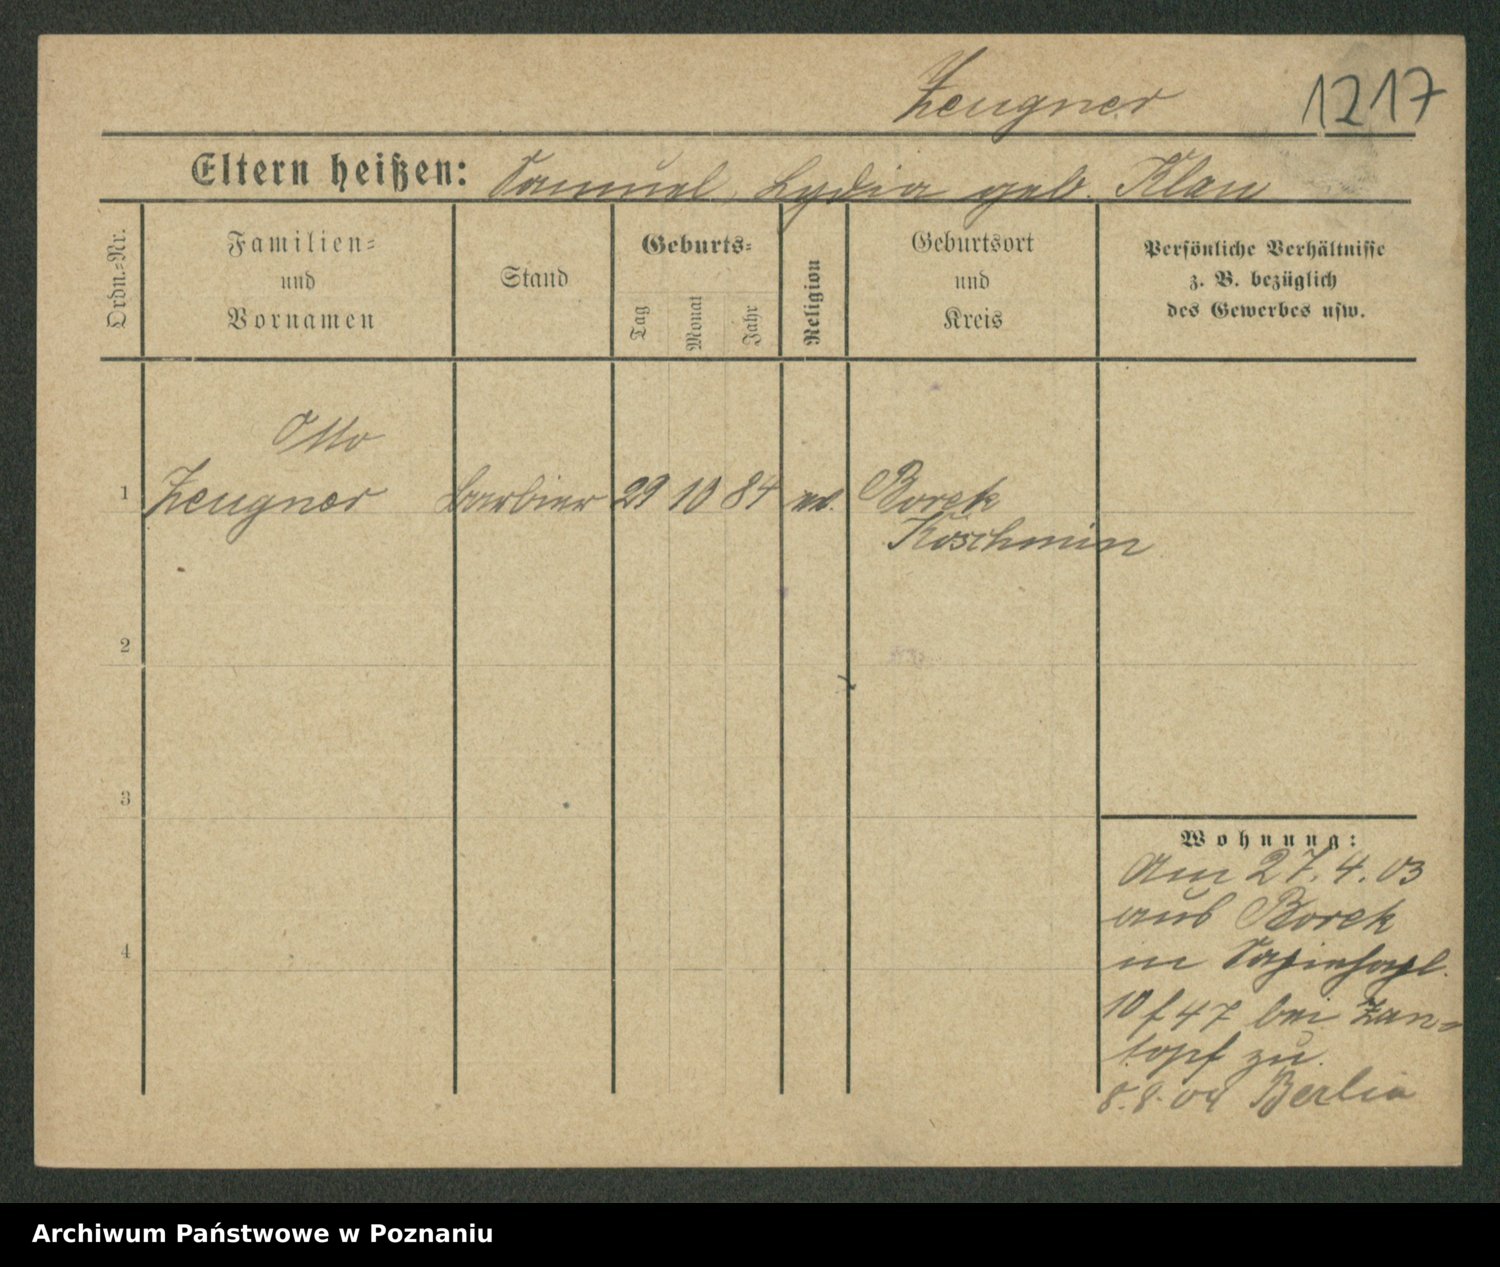 Zeugner 1217
Eltern heißen: Samuel, Lydia geb. Klau
Ordn.-Nr.
Familien-
und
Vornamen
Stand
Geburts-
Tag
Monat
Jahr
Religion
Geburtsort
und
Kreis
Persönliche Verhältnisse
z. B. bezüglich
des Gewerbes usw.
Otto
1 Zeugner Barbier 29 10 84 ev. Borek
Koschmin
2
3
4
Wohnung:
Am 27.4.03
aus Borek
in Sapiehapl.
10 f 47 bei Zan-
topf zu.
8.8.04 Berlin
Archiwum Państwowe w Poznaniu